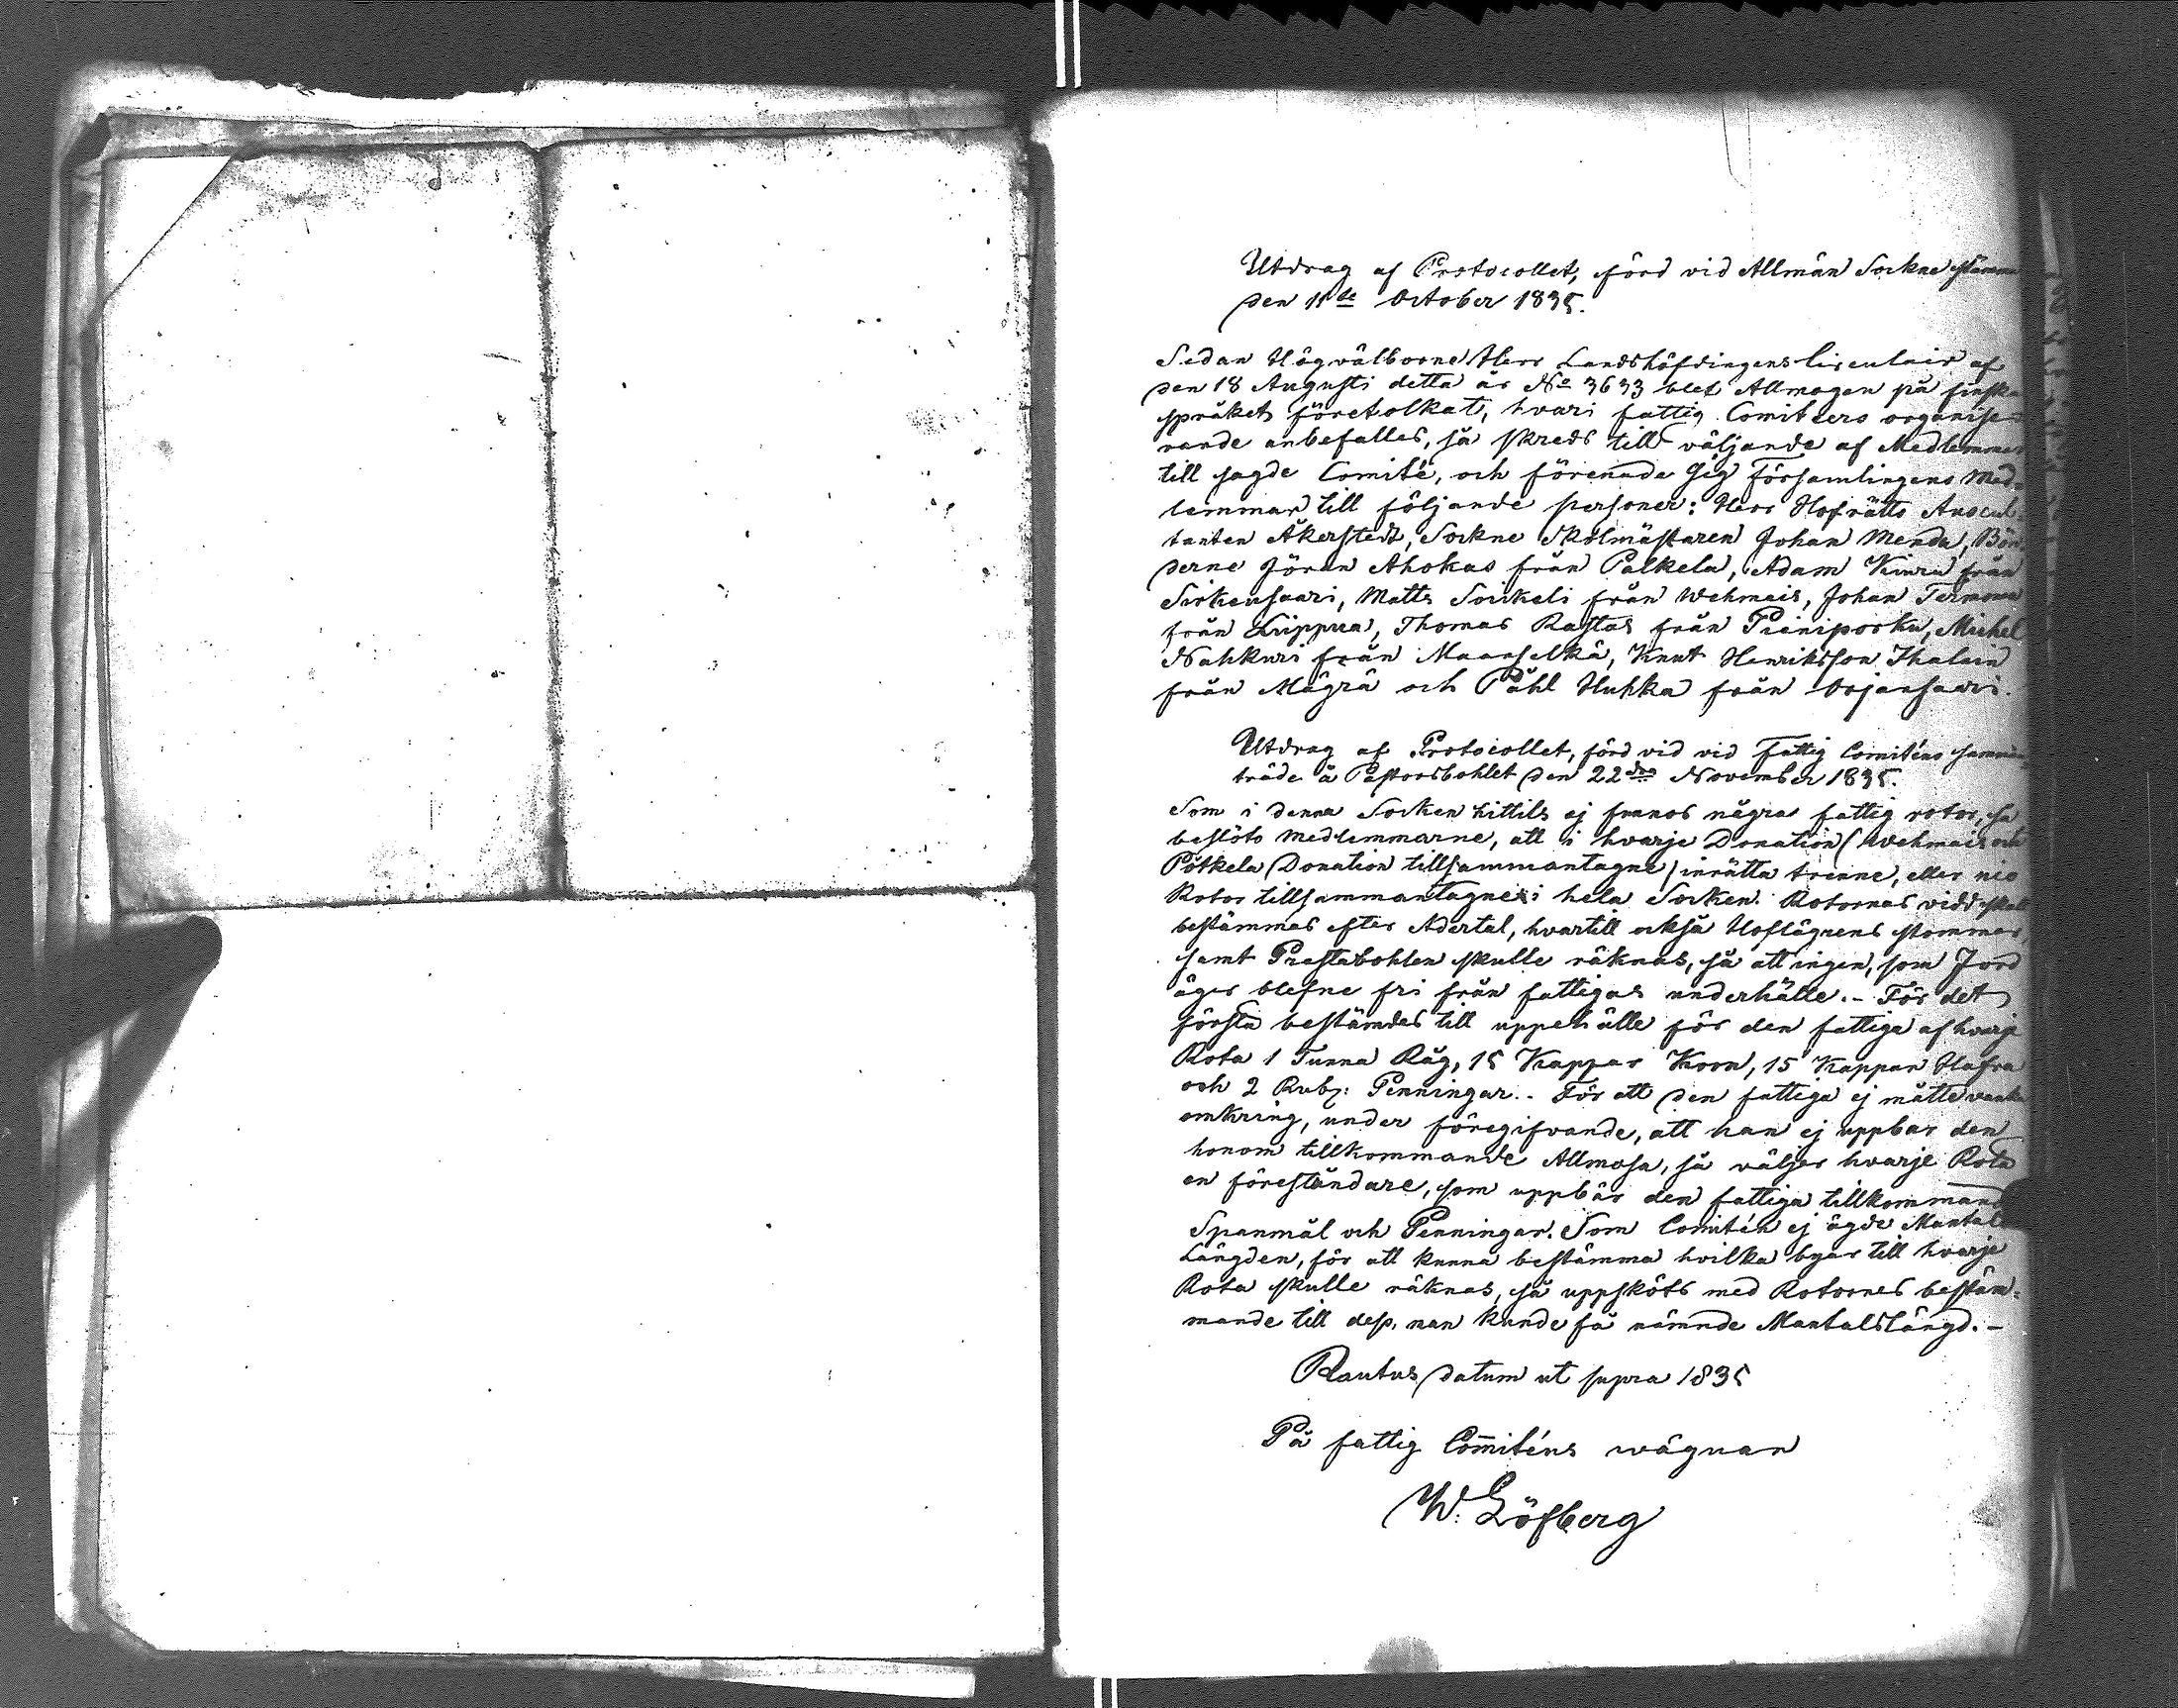 Utdrag af Protocollet, förd vid Allmän Sockne stämma
den 11te October 1835.
Sedan Högvälborne Herr Landshöfdingens Circulair af
den 18 Augusti detta år No 3633 blef Allmogen på finska
språket företolkat, hvari fattig Comitéers organise-
rande anbefalles, så skreds till väljande af Medlemmar
till sagde Comité, och förenade sig Församlingens Med-
lemmar till följande personer: Herr Hofrätts Auscul-
tanten Åkerstedt, Sockne Skolmästaren Johan Menda, Bön-
derne Jöran Ahokas från Palkela, Adam Kiuru från
Sirkensaari, Matts Soikeli från Wehmais, Johan Termonen
från Leippua, Thomas Rastas från Pieniporku, Michel
Nahkuri från Maanselkä, Knut Henriksson Ihalain
från Mägrä och Påhl Huhka från Orjansaari.
Utdrag af Protocollet, förd vid vid Fattig Comiténs samman
träde å Pastorsbohlet den 22dra November 1835.
Som i denna Socken hittils ej funnos några fattig rotor, så
beslöto medlemmarne, att i hvarje Donation (Wehmais och
Pötkela Donation tillsammantagne) inrätta trenne, eller nio
Rotor tillsammantagne i hela Socken. Rotornas vidd skall
bestämmas efter Adertal, hvartill också Hoflägrens stommar,
samt Prestabohlen skulle räknas, så att ingen, som Jord
äger blefve fri från fattigas underhålle. - För det
första bestämdes till uppehälle för den fattiga af hvarje
Rota 1 Tunna Råg, 15 Kappar Korn, 15 Kappar Hafra
och 2 Rub: Penningar. - För att den fattiga ej måtte vanka
omkring, under föregifvande, att han ej uppbär den
honom tillkommande Allmosa, så väljer hvarje Rota
en föreståndare, som uppbär den fattiga tillkommande
Spanmål och Penningar. Som Comitén ej ägde Mantals
Längden, för att kunna bestämma hvilka byar till hvarje
Rota skulle räknas, så uppsköts med Rotornes bestäm-
mande till dess, man kunde få nämnde Mantalslängd. -
Rautus, datum ut supra 1835
På fattig Comiténs wägnar
W. Löfberg